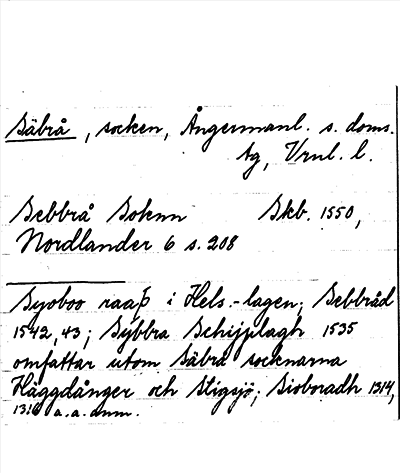 Säbrå, socken, Ångermanl. s. doms.
sg, Vrnl. l.
Sebbrå Soknn Skb. 1550,
Nordlander 6 s. 208
Syoboo raaþ i Hels.-lagen; Sebbråd
1542, 43; Sybbra Schijplagh 1535
omfattar utom Säbrå socknarna
Häggdånger och Stigsjö; Sioboradh 1314,
1316 a.a. anm.